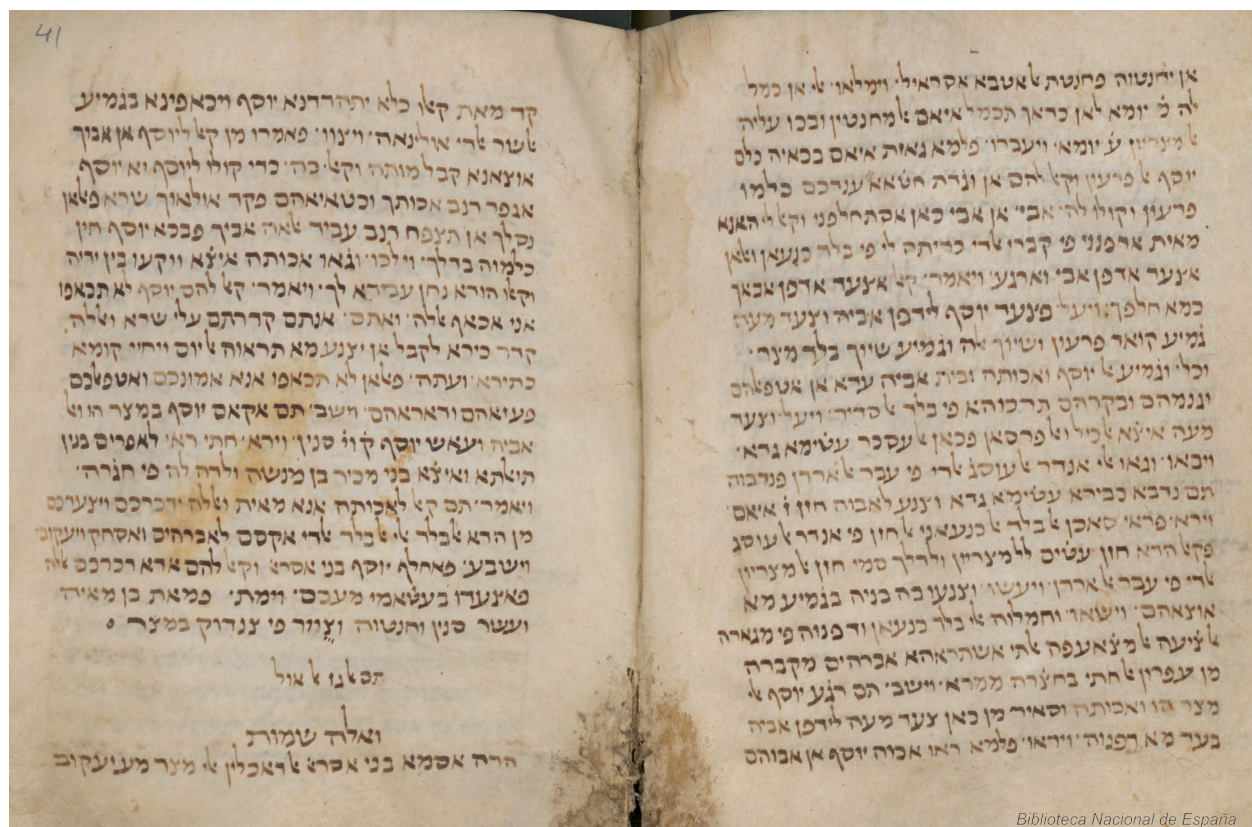 אן יחנטוה פחנטת אלאטבא אסראיל׳ וימלאו׳ אלי אן כמל
לה מ׳ יומא לאן כדאך תכמל איאם אלמחנטין ובכו עליה
אלמצריין ע׳ יומא׳ ויעברו׳ פלמא גאזת איאם בכאיה כלם
יוסף אל פרעון וקאל להם אן וגדת חטאא ענדכם כלמו
פרעון וקולו לה׳ אבי׳ אן אבי כאן אסתחלפני וקאל לי האנא
מאית אדפנני פי קברי אלדי כריתה לי פי בלד כנעאן ואלאן
אצעד אדפן אבי׳ וארגע׳ ויאמר׳ קאל אצעד אדפן אבאך
כמא חלפך׃ ויעל׳ פצעד יוסף לידפן אביה וצעד מעה
גמיע קואד פרעון ושיוך אלה וגמיע שיוך בלד מצר׳
וכל׳ וגמיע אל יוסף ואכותה ובית אביה עדא אן אטפאלהם
וגנמהם ובקרהם תרכוהא פי בלד אלסדיר׳ ויעל׳ וצעד
מעה איצא אלכיל ואלפרסאן פכאן אלעסכר עטימא גדא׳
ויבאו׳ וגאו אלי אנדר אלעוסג אלדי פי עבר אלארדן פנדבוה
תם נדבא כבירא עטימא גדא וצנע לאבוה חזן ז׳ איאם׳
וירא׳ פראי סאכן אלבלד אלכנעאני אלחזן פי אנדר אלעוסג
פקאל הדא חזן עטים ללמצריין ולדלך סמי חזן אלמצריין
אלדי פי עבר אלארדן׳ ויעשו׳ וצנעו בה בניה בגמיע מא
אוצאהם׳ וישאו׳ וחמלוה אלי בלד כנעאן ודפנוה פי מגארה
אלציעה אלמצאעפה אלתי אשתראהא אברהים מקברה
מן עפרון אלחתי בחצרה ממרא׳ וישב׳ תם רגע יוסף אלי
מצר הו ואכותה וסאיר מן כאן צעד מעה לידפן אביה
בעד מא דפנוה׳ ויראו׳ פלמא ראו אכוה יוסף אן אבוהם
41
קד מאת קאלו כלא יתהדדנא יוסף ויכאפינא בגמיע
אלשר אלדי אולינאה׳ ויצוו׳ פאמרו מן קאל ליוסף אן אביך
אוצאנא קבל מותה וקאל כה׳ כדי קולו ליוסף יא יוסף
אגפר דנב אכותך וכטאיאהם פקד אולאוך שרא פאלאן
נסלך אן תצפח דנב עביד אלאה אביך פבכא יוסף חין
כלמוה בדלך׳ וילכו׳ וגאו אכותה איצא ווקעו בין ידיה
וקאלו הודא נחן עבידא לך׳ ויאמר׳ קאל להם יוסף לא תכאפו
אני אכאף אללה׳ ואתם׳ אנתם קדרתם עלי שרא ואללה
קדר כירא לקבל אן יצנע מא תראוה אליום ויחיי קומא
כתירא׳ ועתה׳ פאלאן לא תכאפו אנא אמונכם ואטפאלכם
פעזאהם ודאראהם׳ וישב׳ תם אקאם יוסף במצר הו ואל
אביה ועאש יוסף ק׳ וי׳ סנין׳ וירא׳ חתי ראי לאפרים בנין
תואלתא ואיצא בני מכיר בן מנשה ולדה לה פי חגרה׳
ויאמר׳ תם קאל לאכותה אנא מאית ואללה ידכרכם ויצעדכם
מן הדא אלבלד אלי אלבלד אלדי אקסם לאברהים ואסחק ויעקוב
וישבע׳ פאחלף יוסף בני אסראל וקאל להם אדא דכרכם אללה
פאצעדו בעטאמי מעכם׳ וימת׳ פמאת בן מאיה
ועשר סנין וחנטוה וציר פי צנדוק במצר׃
תם אלגז אלאול
ואלה שמות
הדה אסמא בני אסראל אלדאכלין אלי מצר מע יעקוב